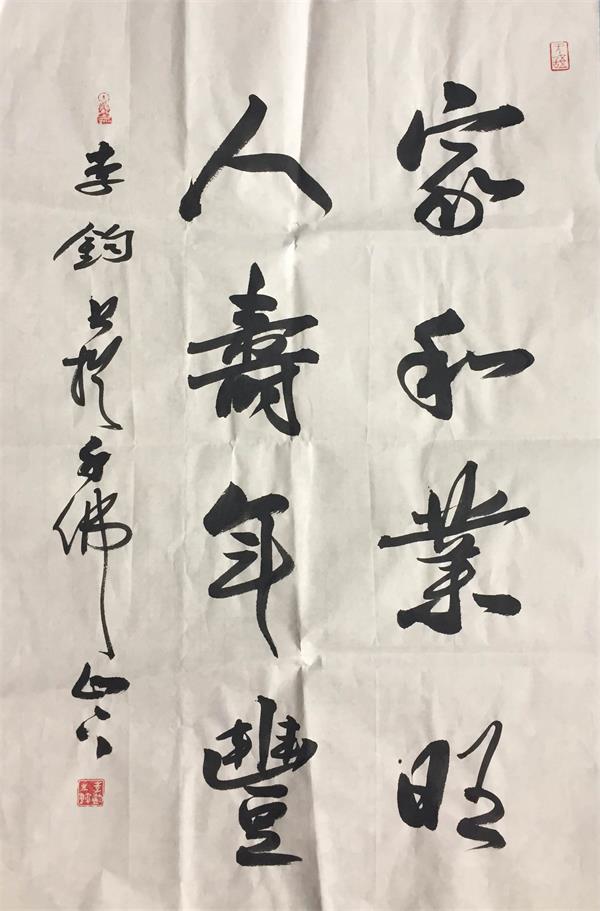 家和業旺
人壽年豐
李鈞書於千佛山下